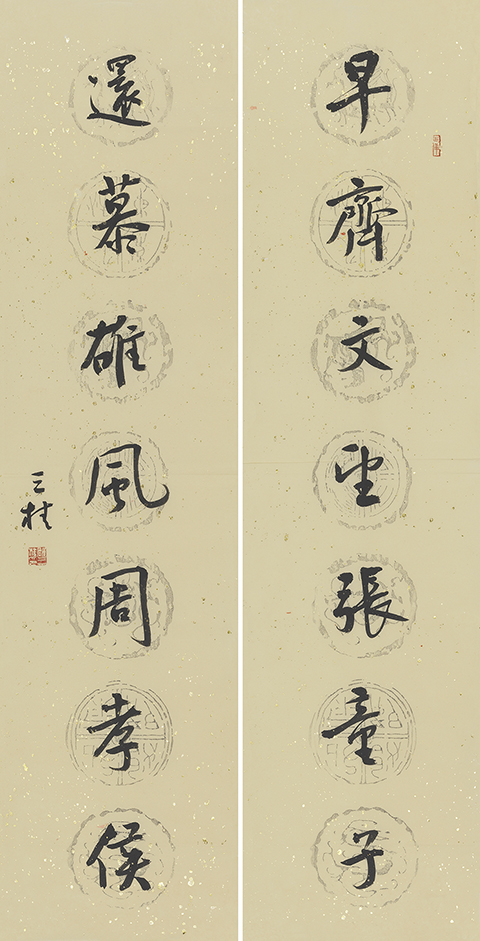 早齊文望張童子
還慕雄風周孝侯
三桂